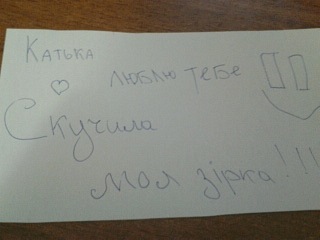 Катька
люблю тебе
Скучила
моя зірка!!!